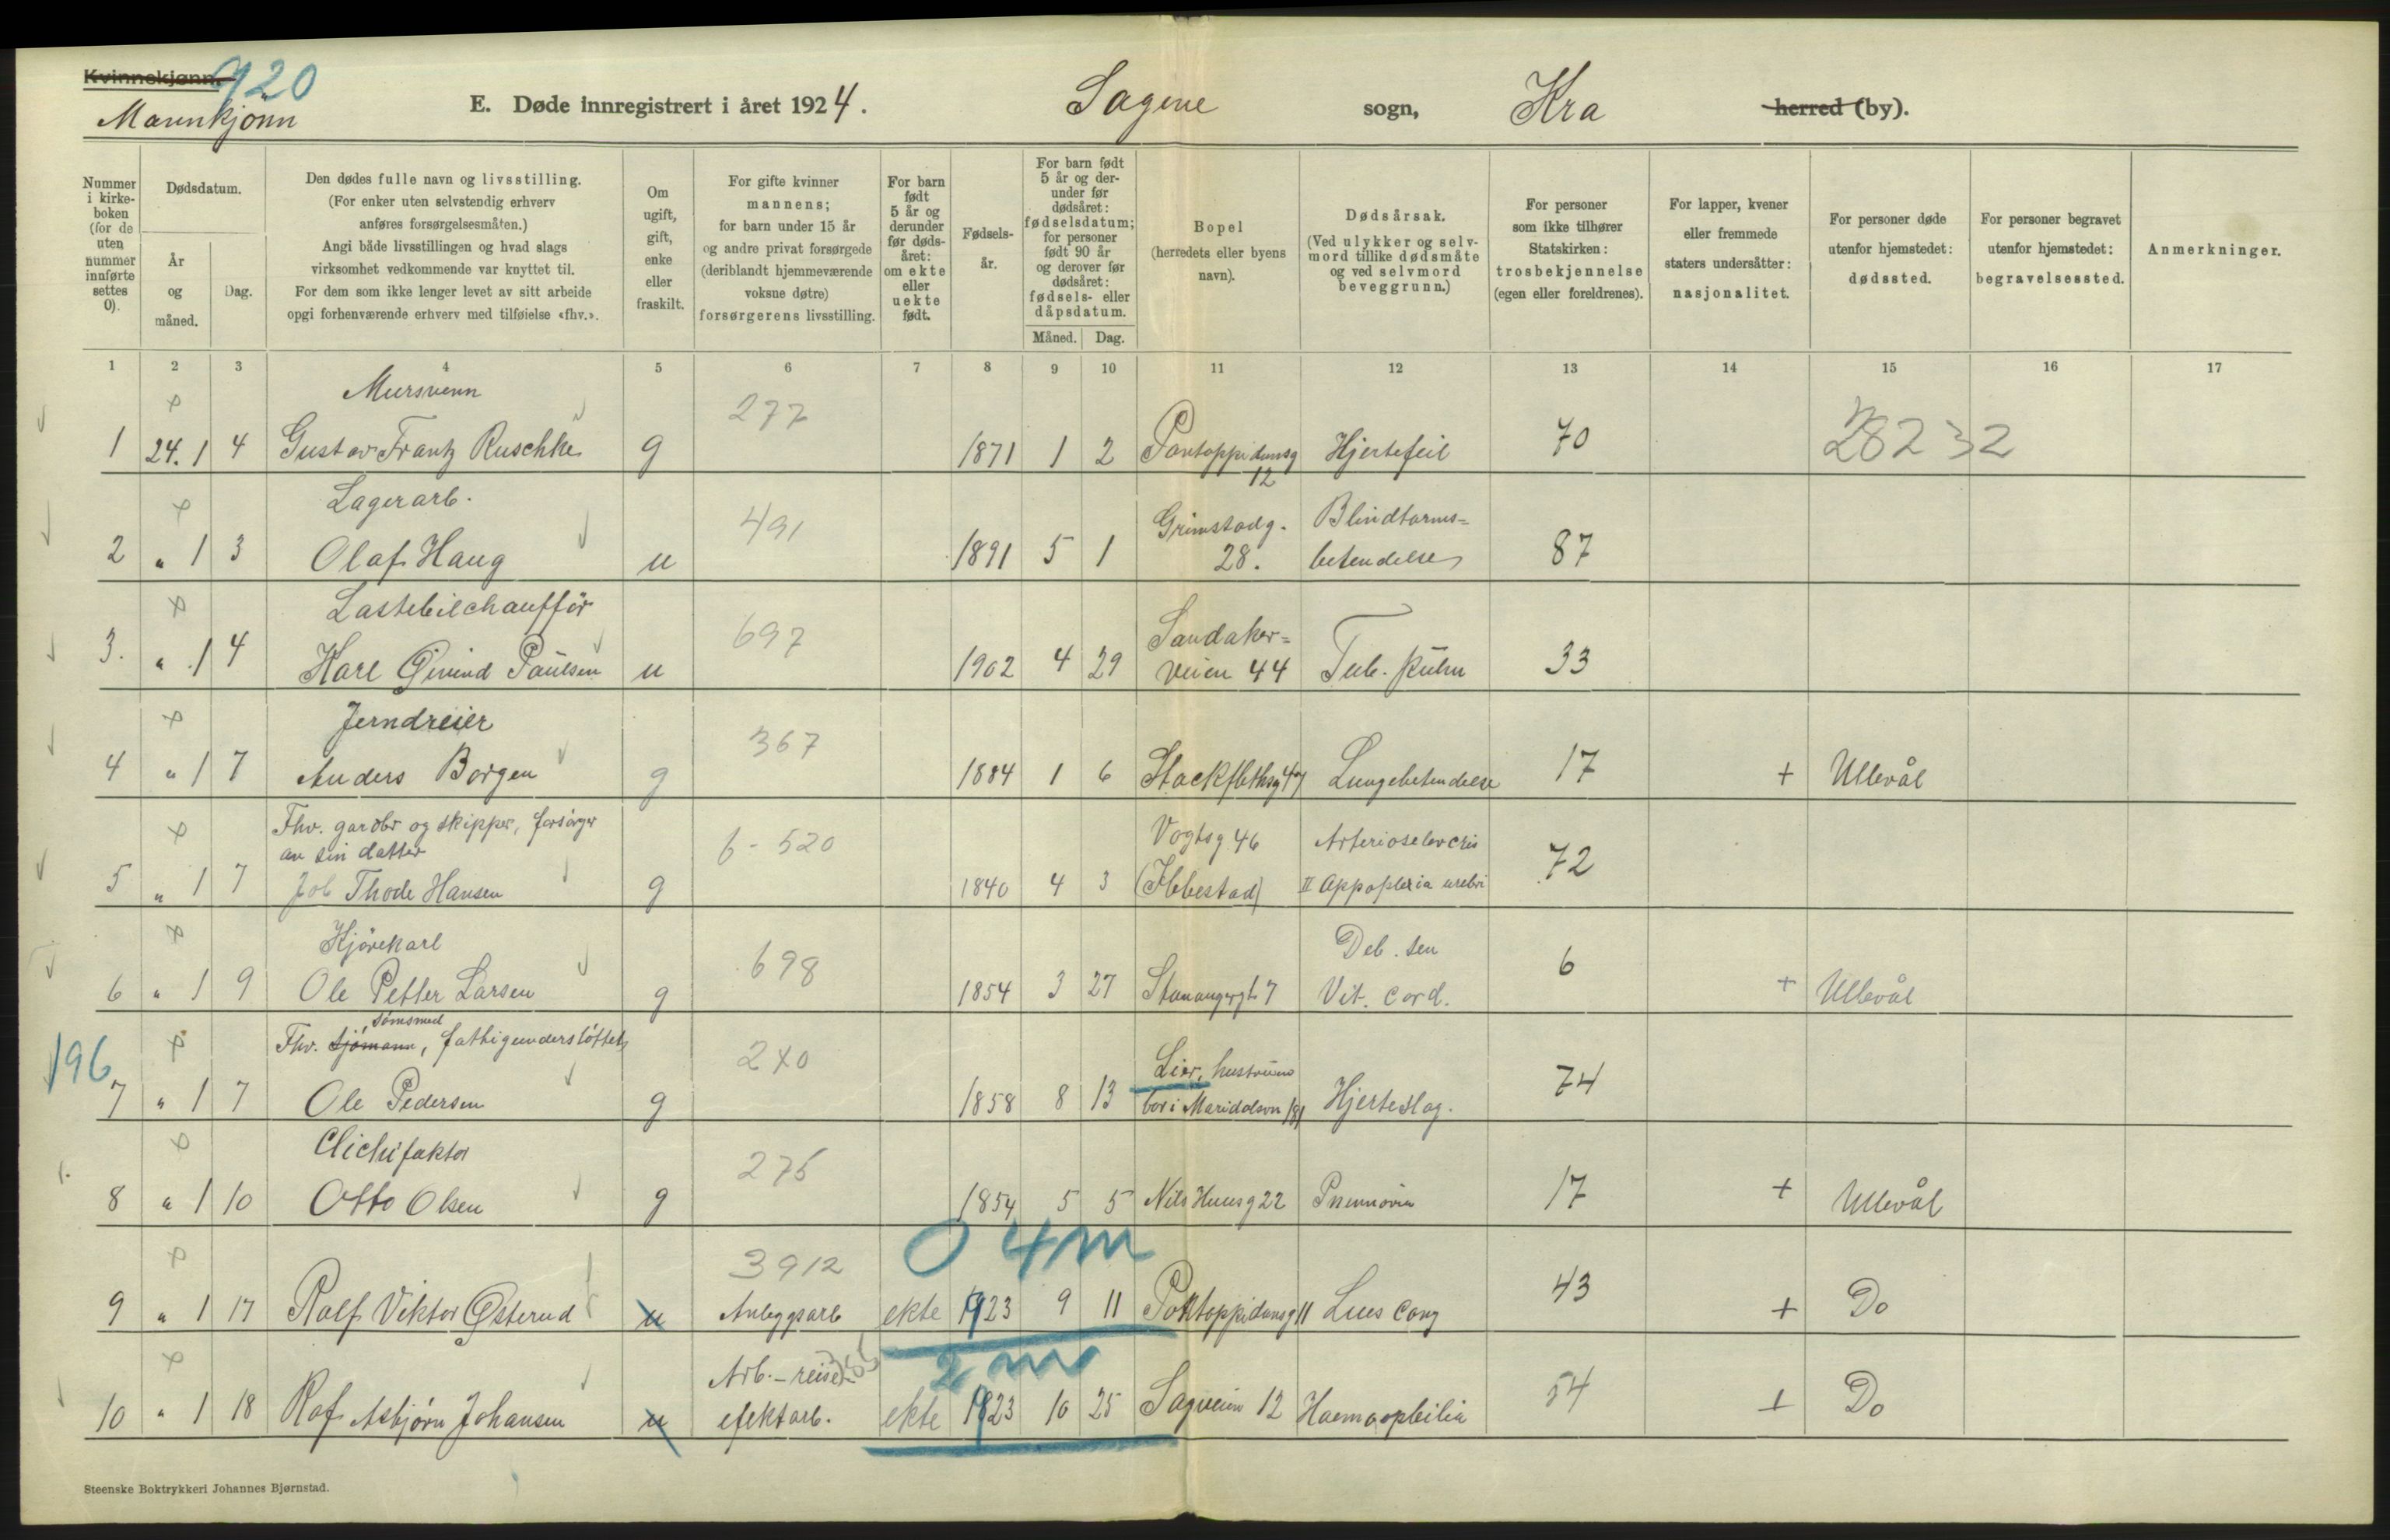 Kvinnekjønn. 920
Mannkjönn
E. Døde innregistrert i året 1924. Sagene sogn, Kra herred (by).
Nummer i kirkeboken (for de uten nummer innførte settes 0).
Dødsdatum.
År og måned.
Dag.
Den dødes fulle navn og livsstilling.
(For enker uten selvstendig erhverv
anføres forsørgelsesmåten.)
Angi både livsstillingen og hvad slags
virksomhet vedkommende var knyttet til.
For dem som ikke lenger levet av sitt arbeide
opgi forhenværende erhverv med tilføielse «fhv.».
Om
ugift,
gift,
enke
eller
fraskilt.
For gifte kvinner
mannens;
for barn under 15 år
og andre privat forsørgede
(deriblandt hjemmeværende
voksne døtre)
forsørgerens livsstilling.
For barn
født
5 år og
derunder
før døds-
året:
om ekte
eller
uekte
født.
Fødsels-
år.
For barn født
5 år og der-
under før
dødsåret:
fødselsdatum;
for personer
født 90 år
og derover før
dødsåret:
fødsels- eller
dåpsdatum.
Måned. Dag.
Bopel
(herredets eller byens
navn).
Dødsårsak.
(Ved ulykker og selv-
mord tillike dødsmåte
og ved selvmord
beveggrunn.)
For personer
som ikke tilhører
Statskirken:
trosbekjennelse
(egen eller foreldrenes).
For lapper, kvener
eller fremmede
staters undersåtter:
nasjonalitet.
For personer døde
utenfor hjemstedet:
dødssted.
For personer begravet
utenfor hjemstedet:
begravelsessted.
Anmerkninger.
1 2 3 4 5 6 7 8 9 10 11 12 13 14 15 16 17
Mursvenn 277
1 24. 1 4 Gustav Frantz Ruschke g 1871 1 2 Pontoppidansg 12 Hjertefeil 70 28232
Lagerarb. 491 Grimstadg. Blindtarms=
2 " 1 3 Olaf Haug u 1891 5 1 28. betendelse 87
Lastebilchaufför 697 Sandaker=
3. " 1 4 Karl Øivind Paulsen u 1902 4 29 veien 44 Tub. pulm 33
Jerndreier 367
4 " 1 7 Anders Borgen g 1884 1 6 Stockflethsg 47 Lungebetendelse 17 + Ullevål
Fhv. gardbr og skipper, forsörger
av sin datter 6-520 Vogtsg 46
5 " 1 7 Thode Hansen g 1840 4 3 (Ibbestad) II 72
Kjörekarl 698 Deb. sen
6 " 1 9 Ole Petter Larsen g 1854 3 27 Stavangergt 7 Vit. cord. 6 + Ullevål
sömsmed
Fhv. sjömann, fattigunderstöttet 240 Lier, hustruen
196 7 " 1 7 Ole Pedersen g 1858 8 13 bor i Maridalsvn 181 Hjerteslag. 74
Clichifaktor 275
8 " 1 10 Otto Olsen g 1854 5 5 Nils Huusg 22 Pneumoni 17 + Ullevål
3912 0 4m
9 " 1 17 Rolf Viktor Østerud u Anleggsarb ekte 1923 9 11 Pontoppidansg 11 Lues cong 43 + Do
Arb. - reise- 2 m
10 " 1 18 Rolf Asbjørn Johansen u efektarb. ekte 1923 10 25 Sagveien 12 Haemoophilia 54 + Do
Steenske Boktrykkeri Johannes Bjørnstad.